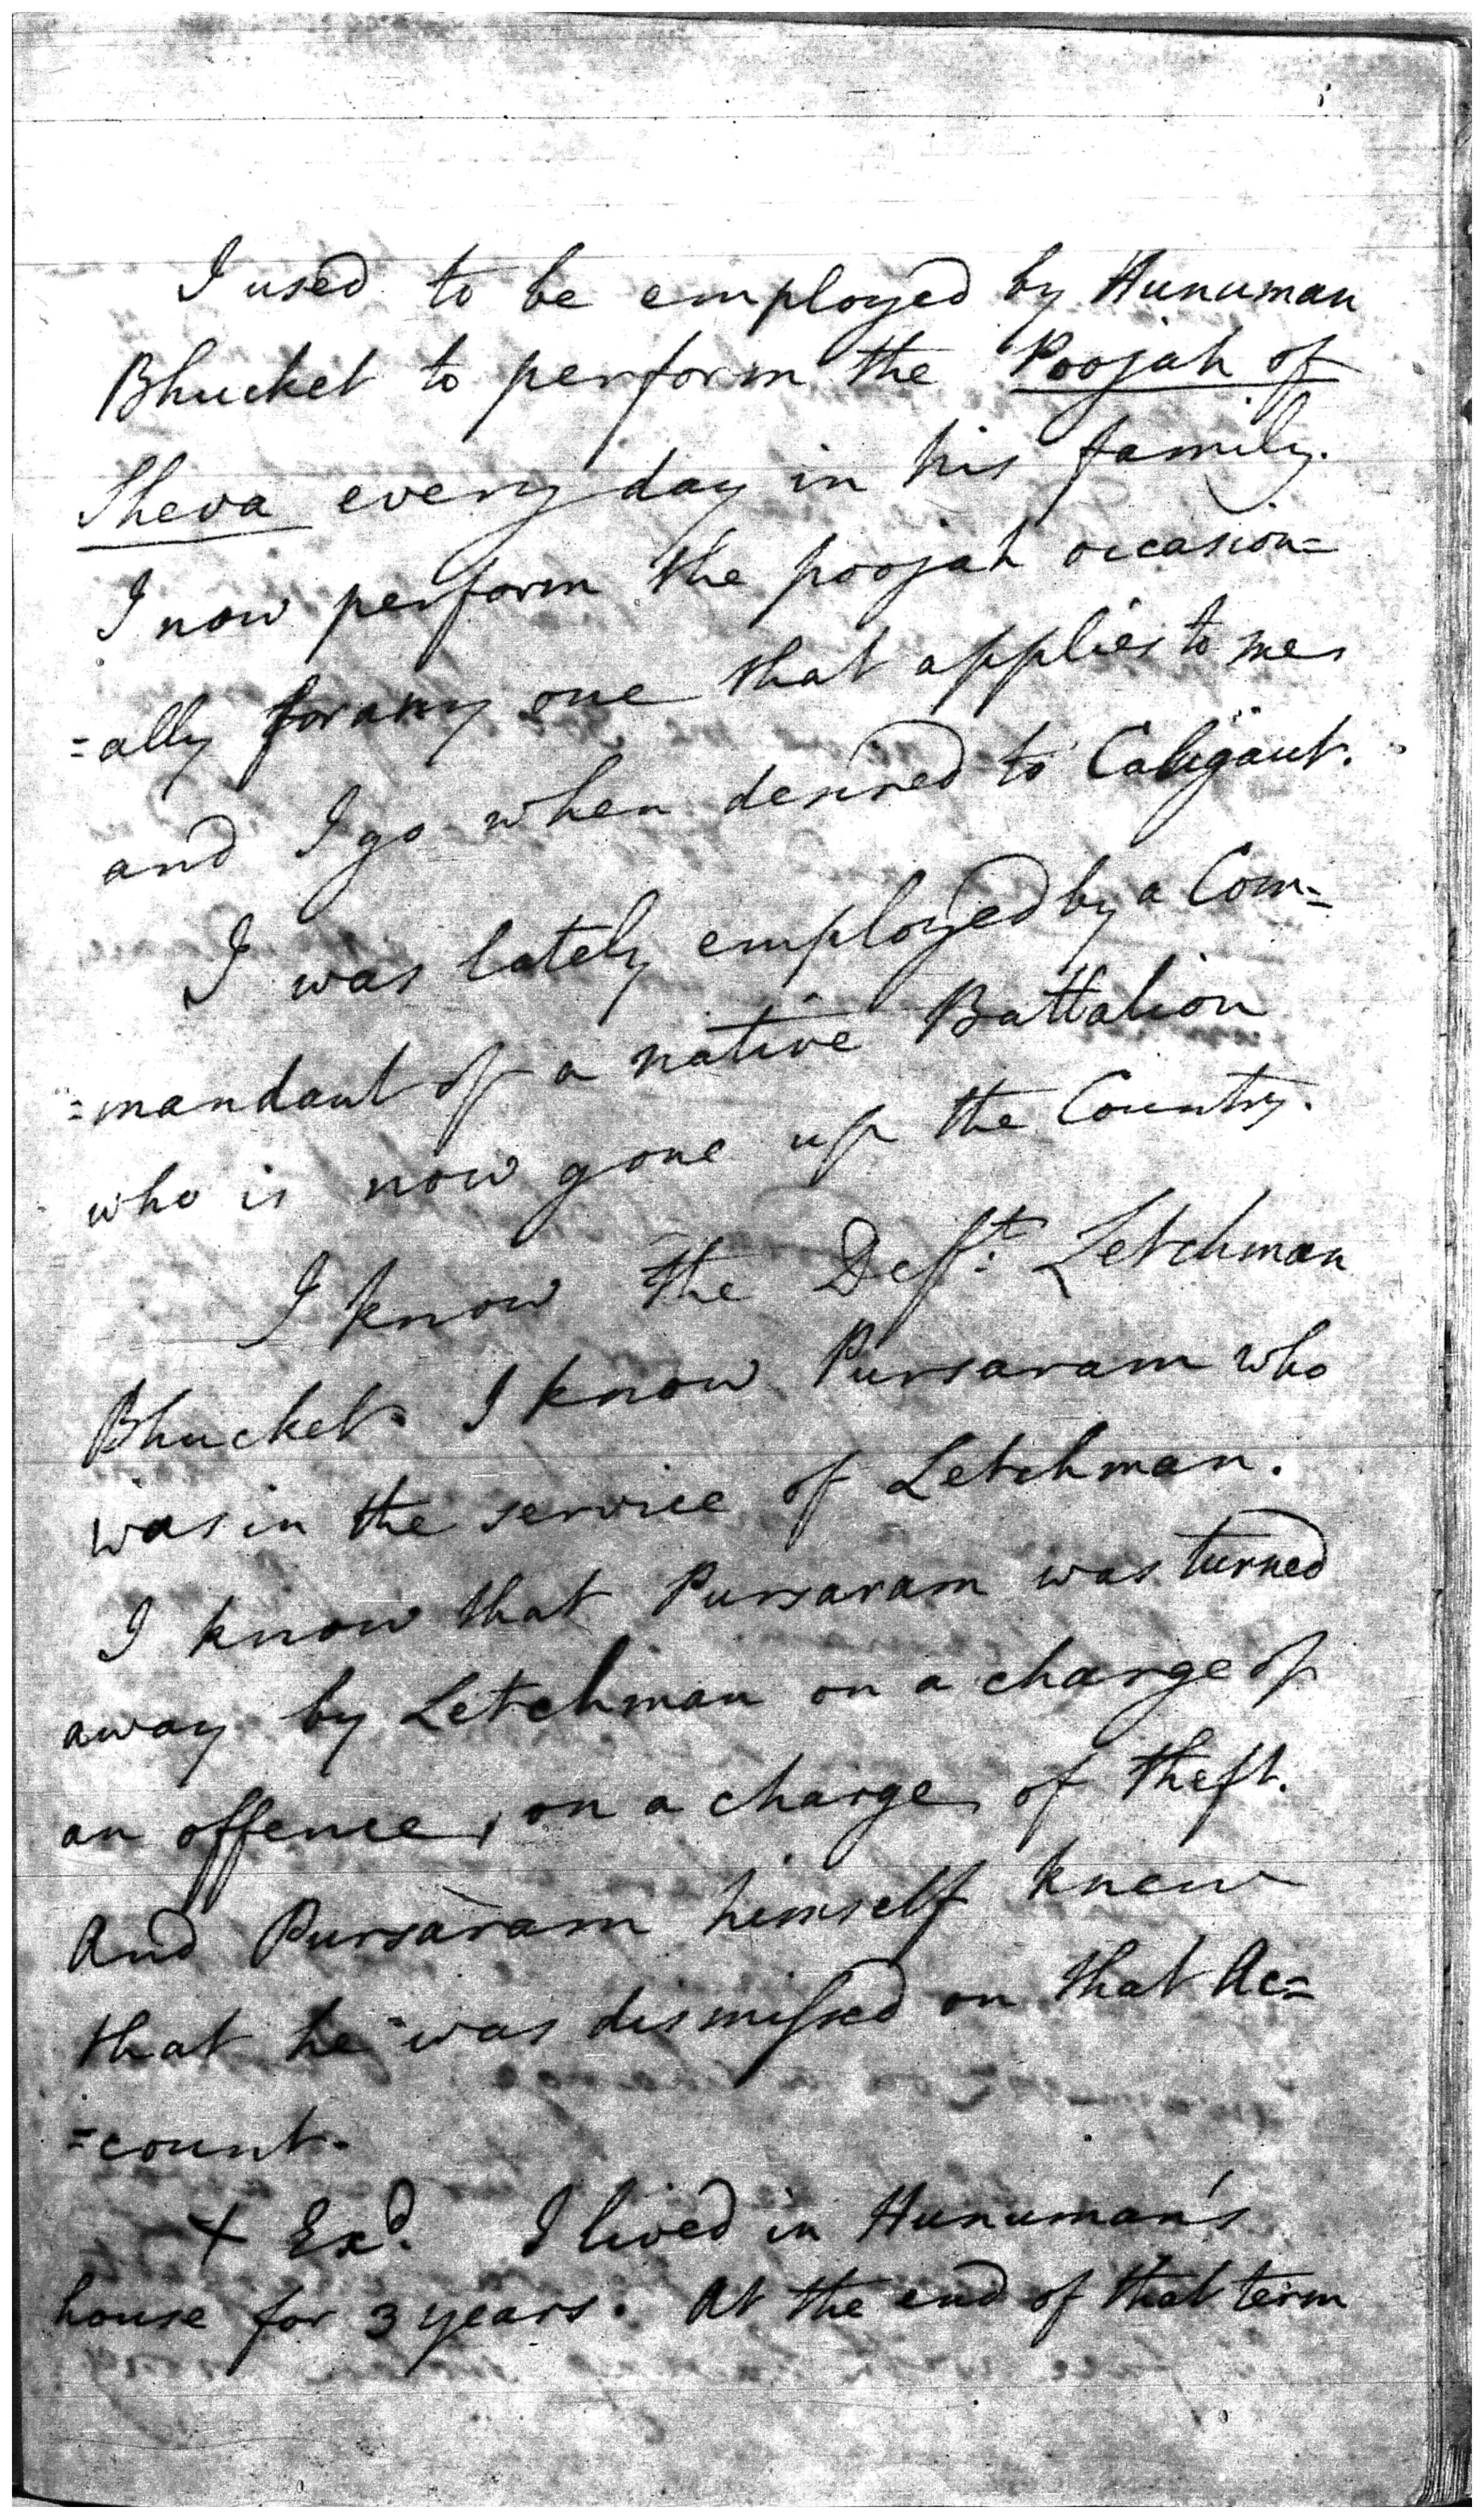 I used to be employed by Hunuman
Bhucket to perform the Poojah of
Sheva every day in his family.
I now perform the poojah occasion=
=ally for any one that applies to me
and I go when desired to Caligaut.
I was lately employed by a Com=
=mandant of a native Battalion
who is now gone up the Country.
I know the Deft. Letchman
Bhucket. I know Pursaram who
was in the service of Letchman.
I know that Pursaram was turned
away by Letchman on a charge of
an offence, on a charge of theft.
And Pursaram himself knew
that he was dismissed on that Ac=
=count.
+ Exd. I lived in Hunuman's
house for 3 years. At the end of that term